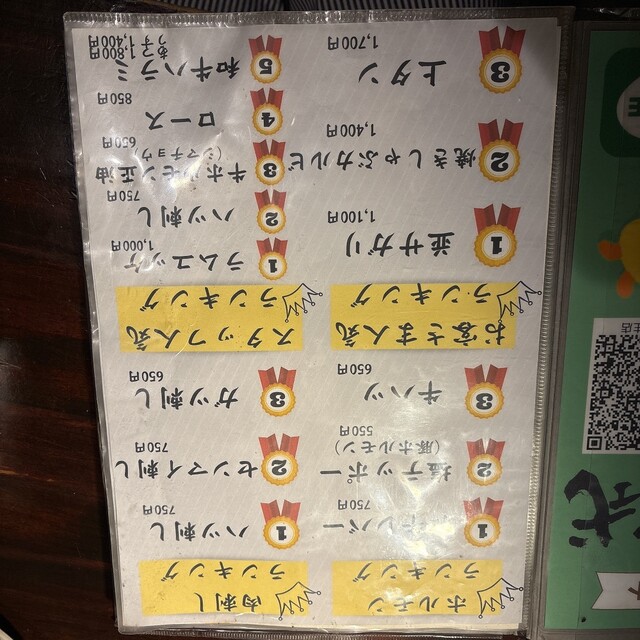 ホルモン
ランキング
1
750円
2 塩テッポー
(豚ホルモン)
550円
3 牛ハツ
650円
肉刺し
ランキング
1 ハツ刺し
750円
2 センマイ刺し
750円
3 ガツ刺し
650円
お客さま人気
ランキング
1 並サガリ
1,100円
2 焼きしゃぶカルビ
1,400円
3 上タン
1,700円
スタッフ人気
ランキング
1 ラムユッケ
1,000円
2 ハツ刺し
750円
3 牛ホルモン正油
(シマチョウ)
650円
4 ロース
850円
5 和牛ハラミ
1,800円
1,400円